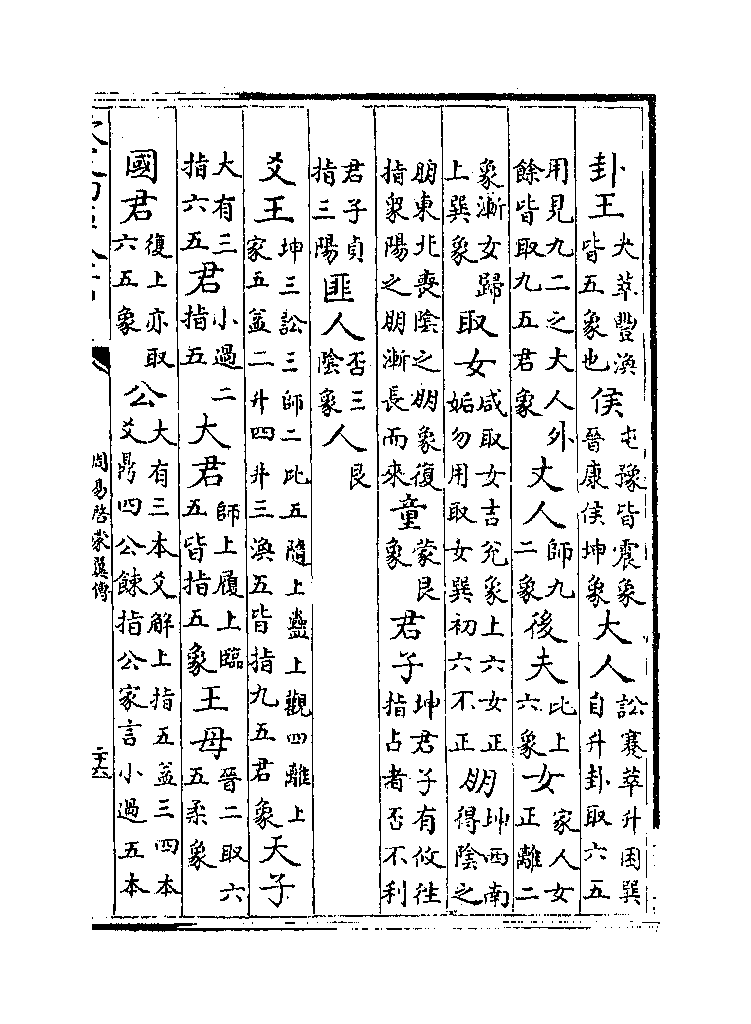 卦王夬萃豐渙皆五象也侯屯豫皆震象晉康侯坤象大人訟蹇萃升困巽自升卦取六五
用見九二之大人外餘皆取九五君象丈人師九二象後夫比上六象女家人女正離二
象漸女歸上巽象取女咸取女吉兊象上六女正姤勿用取女巽初六不正朋坤西南得陰之
朋東北喪陰之朋象復指衆陽之朋漸長而來童蒙艮象君子坤君子有攸往指占者否不利
君子貞指三陽匪人否三陰象人艮
爻王坤三訟三師二比五隨上蠱上觀四離上家五益二升四井三渙五皆指九五君象天子
大有三指六五君小過二指五大君師上履上臨五皆指五象王母晉二取六五柔象
國君復上亦取六五象公大有三本爻解上指五益三四本爻鼎四公餗指公家言小過五本
周易啓蒙翼傳